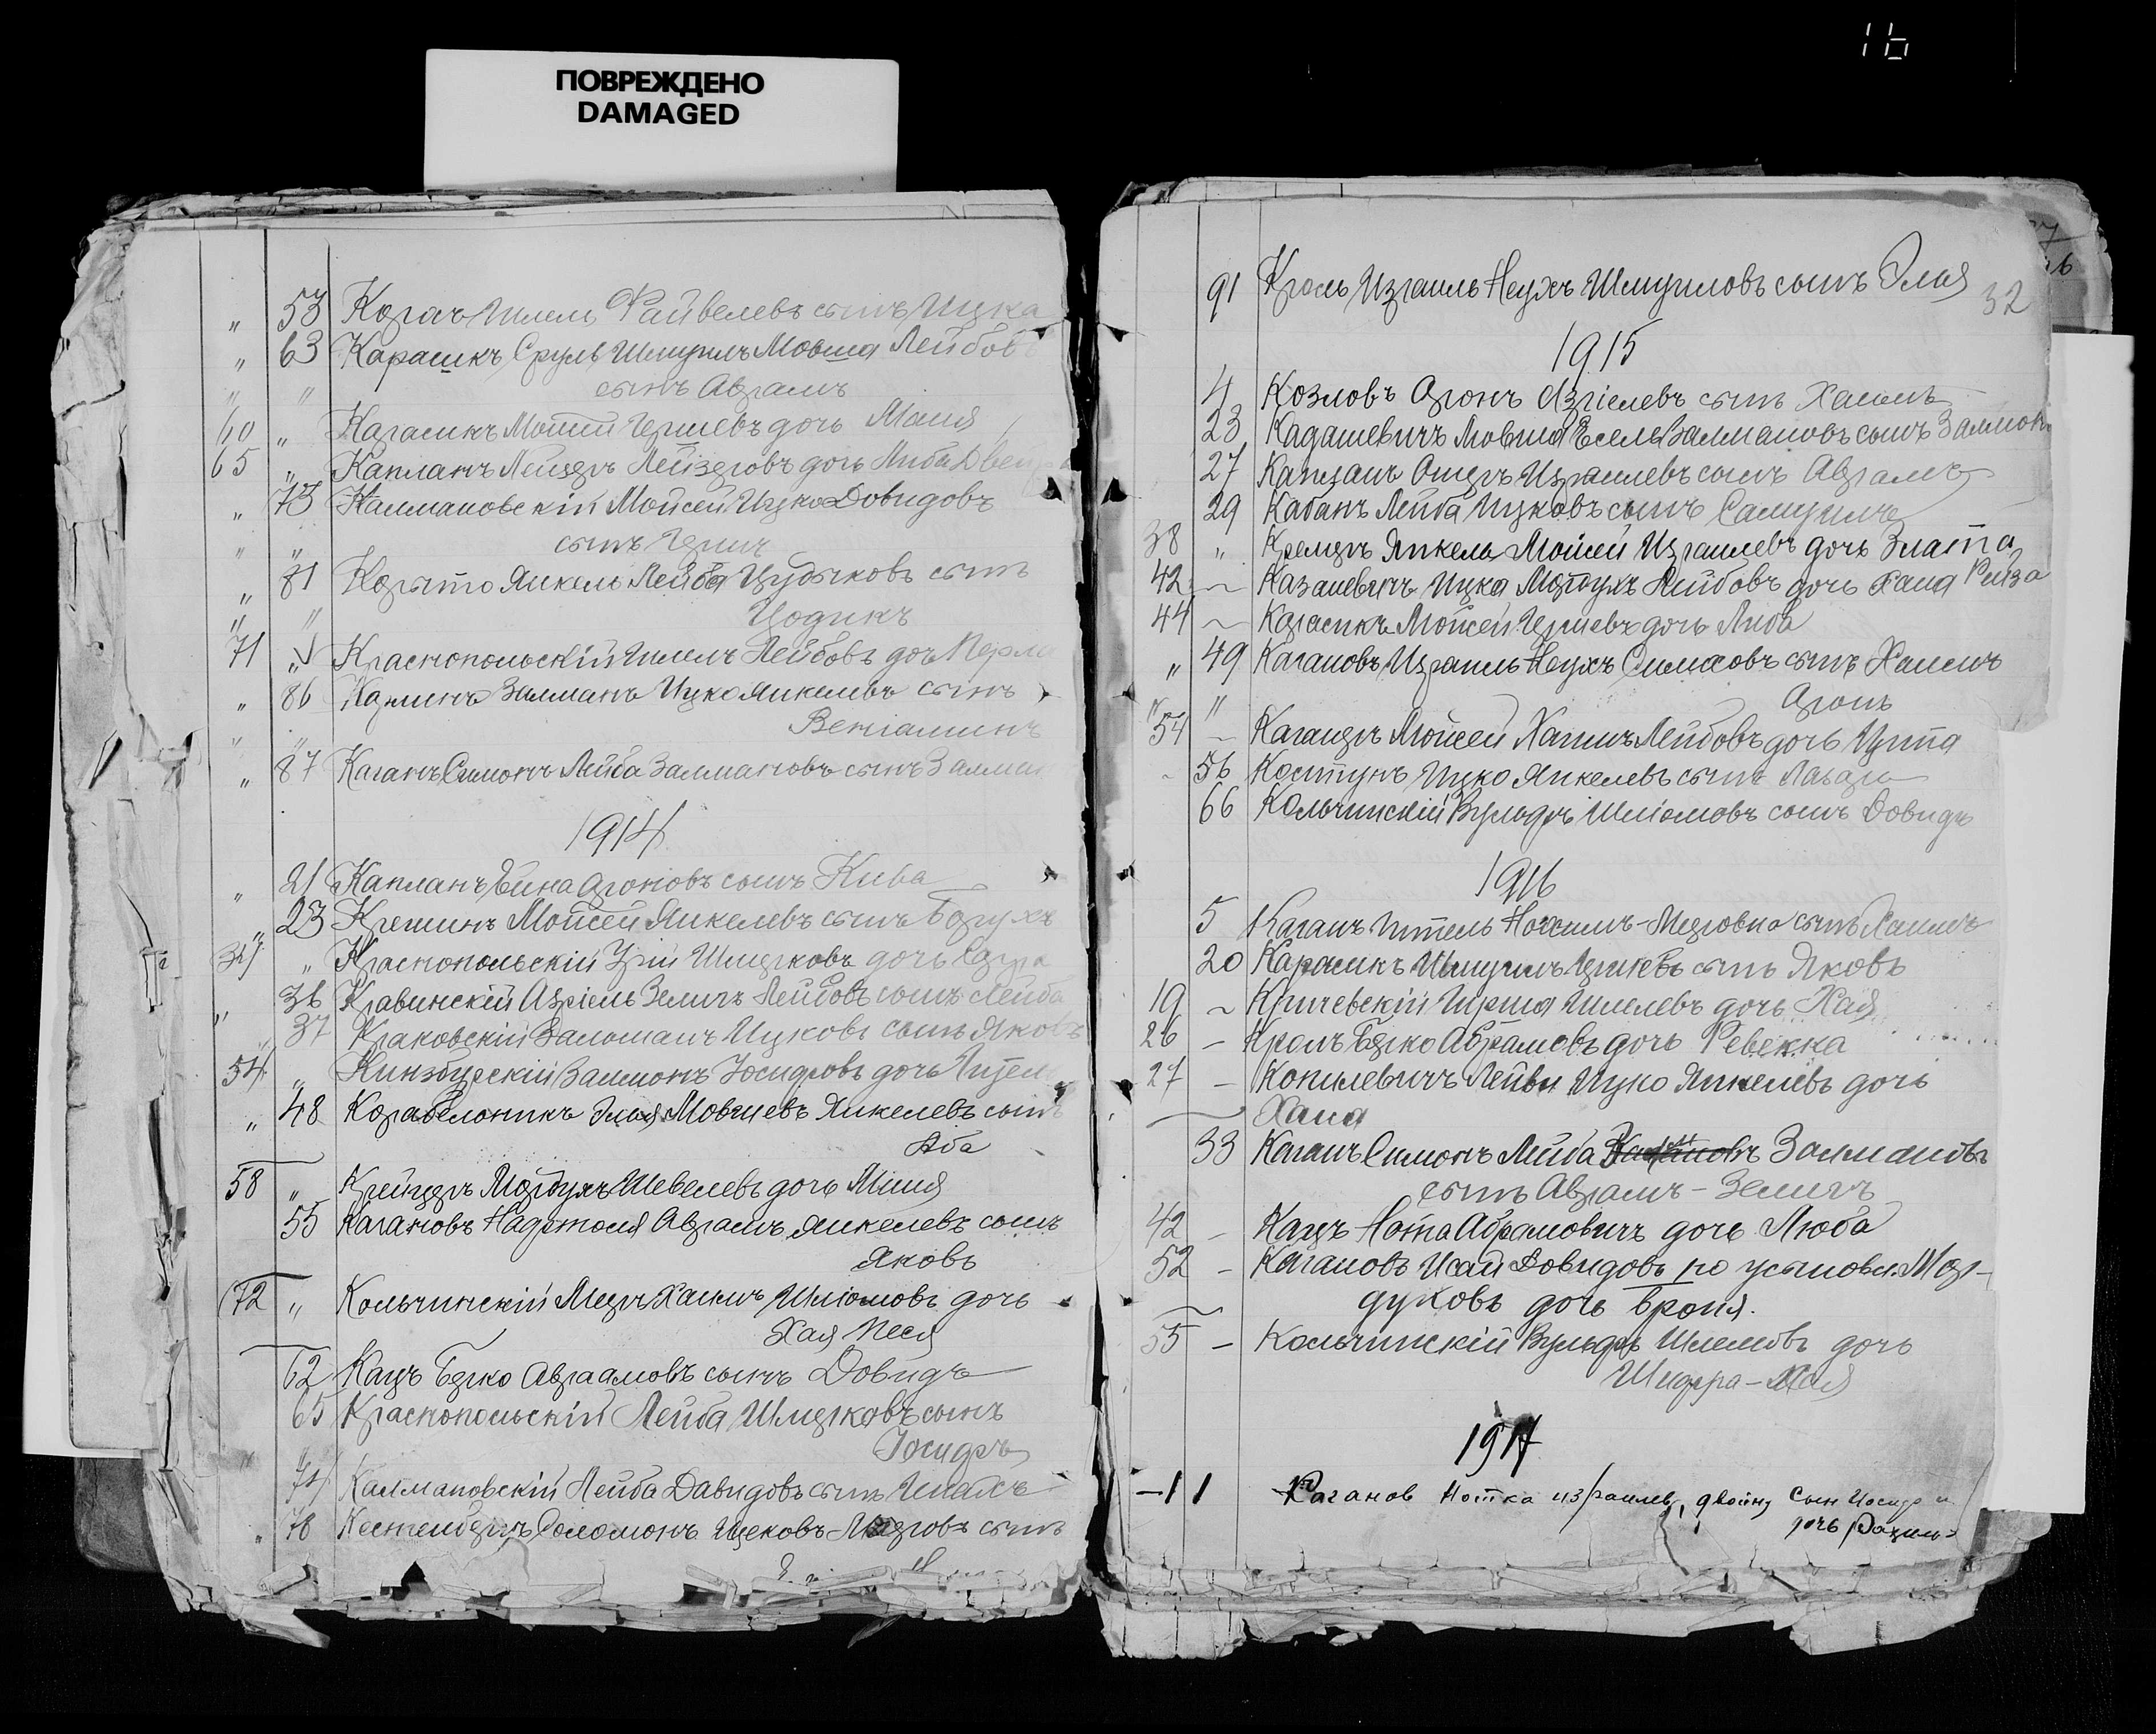 16
ПОВРЕЖДЕНО
DAMAGED
" 53 Корачъ Шлемъ Файвелевъ сынъ Ицка
" 63 Карасикъ Сруль Шмуилъ Мовша Лейбовъ
" " сынъ Абрамъ
60 " Карасикъ Мовшей Гершевъ дочь Маня
65 " Капланъ Лейзеръ Лейзеровъ дочь Либа Двейра
" 75 Калмановскій Мойсей Ицко Довидовъ
" " сынъ Гершъ
" 81 Корыто Янкель Лейба Цудиковъ сынъ
" " Цодикъ
71 " Краснопольскій Шлемъ Лейбовъ дочь Перла
" 86 Карлинъ Залманъ Ицко Янкелевъ сынъ
" " Веніаминъ
" 87 Каганъ Симонъ Лейба Залмановъ сынъ Залман
1914
" 21 Капланъ Бина Ароновъ сынъ Кива
" 23 Креминъ Мойсей Янкелевъ сынъ Борухъ
32 " Краснопольскій Урій Шмерковъ дочь Сара
" 36 Кравинскій Азріель Зеликъ Лейбовъ сынъ Лейба
" 37 Краковскій Залманъ Ицковъ сынъ Яковъ
54 " Кинзбурскій Залмонъ Іосифовъ дочь
" 48 Корабелоникъ Элья Мовшевъ Янкелевъ сынъ
Аба
58 " Крейцеръ Мордухъ Шевелевъ дочь Миня
55 Кагановъ Нафтоля Абрамъ Янкелевъ сынъ
Яковъ
72 " Кольчинскій Мееръ Хаимъ Шліомовъ дочь
Хая Песя
62 Кацъ Берко Авраамовъ сынъ Довидъ
65 Краснопольскій Лейба Шмерковъ сынъ
Іосифъ
" 74 Калмановскій Лейба Давидовъ сынъ
" 76 Кестенбергъ Соломонъ сынъ
91 Кроль Израиль Неухъ Шмуиловъ сынъ Элья
32
1915
4 Козловъ Аронъ Азріелевъ сынъ Хаимъ
23 Кадашевичъ Мовша Есель Залмановъ сынъ Залмонъ
27 Капцанъ Ошеръ Израилевъ сынъ Абрамъ
29 Кабанъ Лейба Ицковъ сынъ Самуилъ
38 " Кремеръ Янкель Мойсей Израилевъ дочь Злата
42 ~ Казаневичъ Ицка Мордухъ Лейбовъ дочь Хана Рейза
44 ~ Карасикъ Мойсей Гершевъ дочь Либа
" 49 Кагановъ Израиль Неухъ Симховъ сынъ Хаимъ
" " Аронъ
54 ~ Каганеръ Мойсей Хаимъ Лейбовъ дочь Ципа
- 56 Костунъ Ицко Янкелевъ сынъ Лазарь
66 Кольчинскій Вульфъ Шліомовъ сынъ Довидъ
1916
5 Каганъ Ноххимъ-Меровна сынъ Хаимъ
20 Карасикъ Шмуилъ Гершевъ сынъ Яковъ
19 ~ Кричевскій Гирша Шмелевъ дочь Хая
26 - Кролъ Берко Абрамовъ дочь Ревекка
27 - Копилевичъ Лейви Ицко Янкелевъ дочь
Хана
33 Каганъ Симонъ Лейба Залмановъ
сынъ Абрамъ-Зеликъ
42 - Кацъ Нота Абрамовичъ дочь Люба
52 - Кагановъ Исай Довидовъ по усыновл. Мор-
духовъ дочь Броня.
55 - Кольчинскій Вульфъ Шлемовъ дочь
Шифра-Хая
1917
- 11 Каганов Нотка израилев, двойня Сын Иосиф и
дочь Рахиль